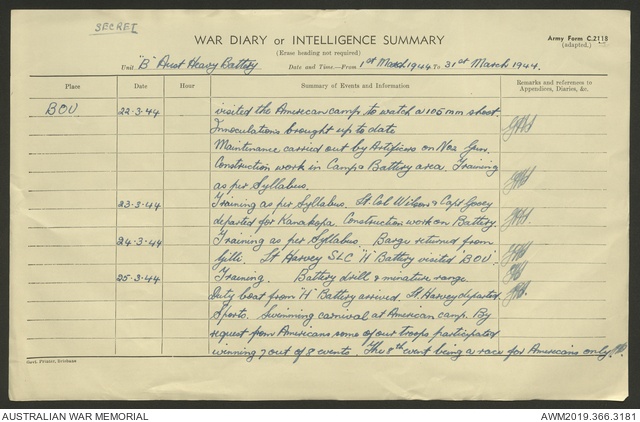 SECRET
WAR DIARY or INTELLIGENCE SUMMARY
Army Form C.2118
(adapted.)
(Erase heading not required)
Unit "B" Aust Heavy Battery Date and Time.—From 1st March 1944 To 31st March 1944.
Place Date Hour Summary of Events and Information Remarks and references to
Appendices, Diaries, &c.
BOU 22-3-44 visited the American camp to watch a 105mm shoot.
Innoculations brought up to date
Maintenance carried out by Artificers on No2 Gun.
Construction work in Camp & Battery area. Training
as per Syllabus.
23-3-44 Training as per Syllabus. Lt. Col Wilson & Capt
departed for Construction work on Battery
24-3-44 Training as per Syllabus. Barge returned from
Lt Harvey SLC "H" Battery visited 'BOU'
25-3-44 Training. Battery drill & minature range.
Duty boat from "H" Battery arrived. Lt. Harvey departed.
Sports. Swimming carnival at American camp. By
request from Americans some of our troops participated
winning 7 out of 8 events. The 8th event being a race for Americans only.
Govt. Printer, Brisbane
AUSTRALIAN WAR MEMORIAL
AWM2019.366.3181